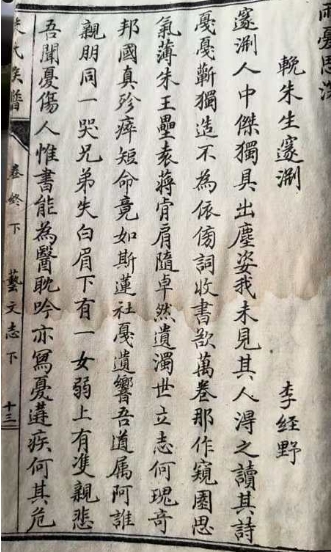 輓朱生邃渊
李経野
邃渊人中傑獨具出塵姿我未見其人淂之讀其詩
戛戛蘄獨造不為依傍詞收書欲萬卷那作窺園思
氣薄朱王壘袁蔣肯肩隨卓然遺濁世立志何瑰奇
邦國真殄瘁短命竟如斯蓮社戛遺響吾道属阿誰
親朋同一哭兄弟失白眉下有一女弱上有雙親悲
吾聞憂傷人惟書能為醫耽吟亦寫憂遘疾何其危
氏族譜
卷終下
藝文志下
十三